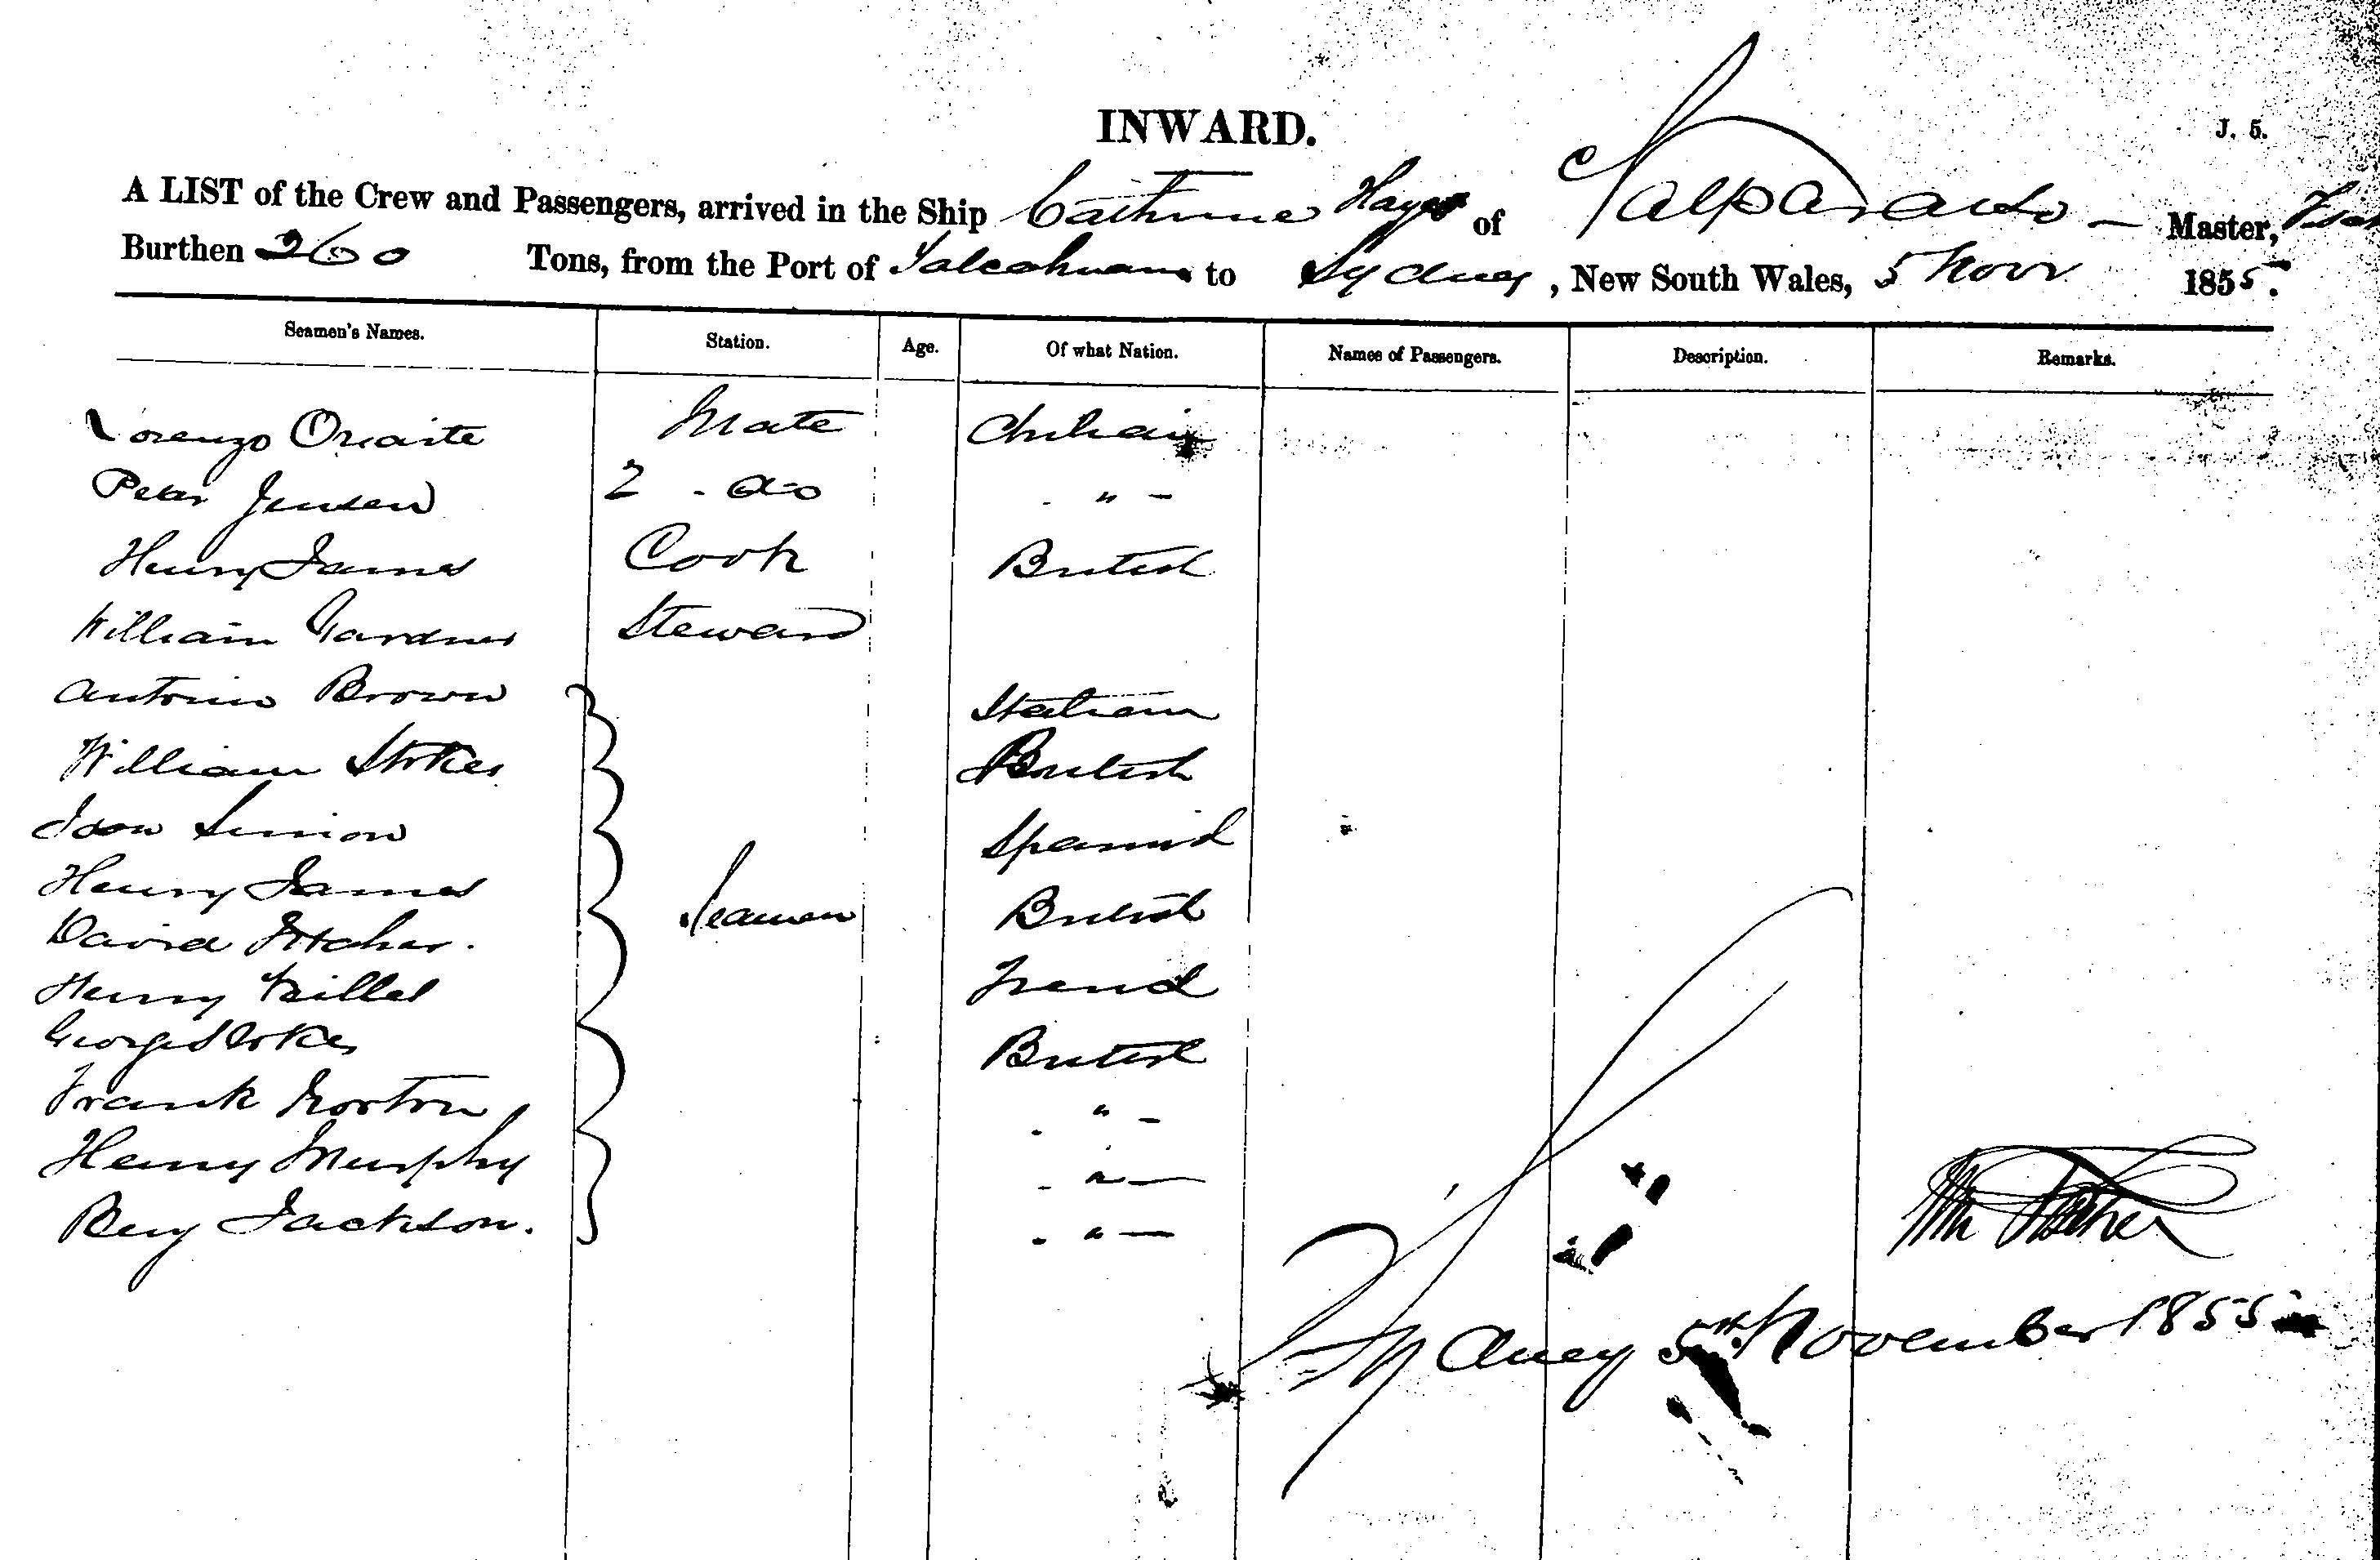 INWARD.
J. 5.
A LIST of the Crew and Passengers, arrived in the Ship Catherine Hayes of Valparaiso — Master,
Burthen 260 Tons, from the Port of Talcahuano to Sydney, New South Wales, 5 Novr 1855.
Seamen's Names. Station. Age. Of what Nation. Names of Passengers. Description. Remarks.
Lorenzo Oriarte Mate Chilian
Peter Jensen 2 . do . " -
Henry James Cook British
William Gardner Steward
Antonio Brown Italian
William Stokes British
Spanish
Henry James Seamen British
David
Henry French
George Stokes British
Frank Norton . " -
Henry Murphy . " —
Benj Jackson. . " —
Sydney 5th November 1855